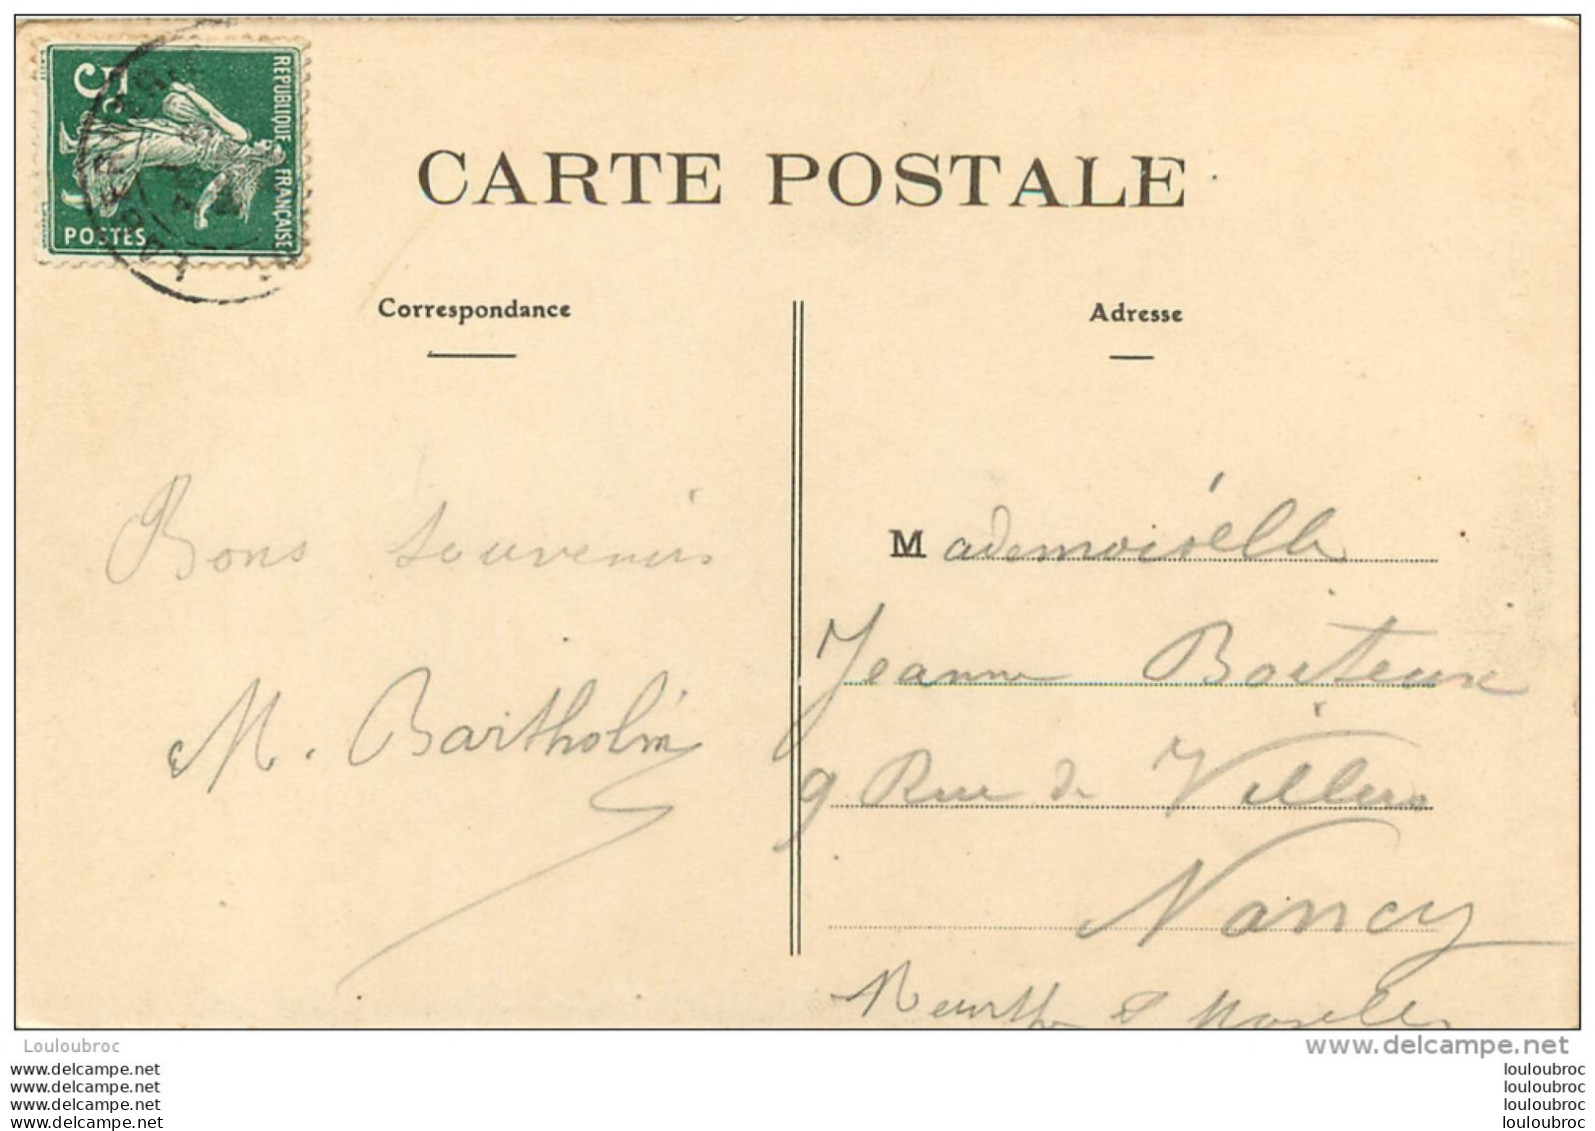 REPUBLIQUE FRANÇAISE
5c
POSTES
CARTE POSTALE
Correspondance
Adresse
Bons souvenirs
M. Bartholin
Mademoiselle
Jeanne Boiteux
9 Rue de Villers
Nancy
Meurthe & Moselle
Louloubroc
www.delcampe.net
www.delcampe.net
www.delcampe.net
www.delcampe.net
www.delcampe.net
louloubroc
louloubroc
louloubroc
louloubroc